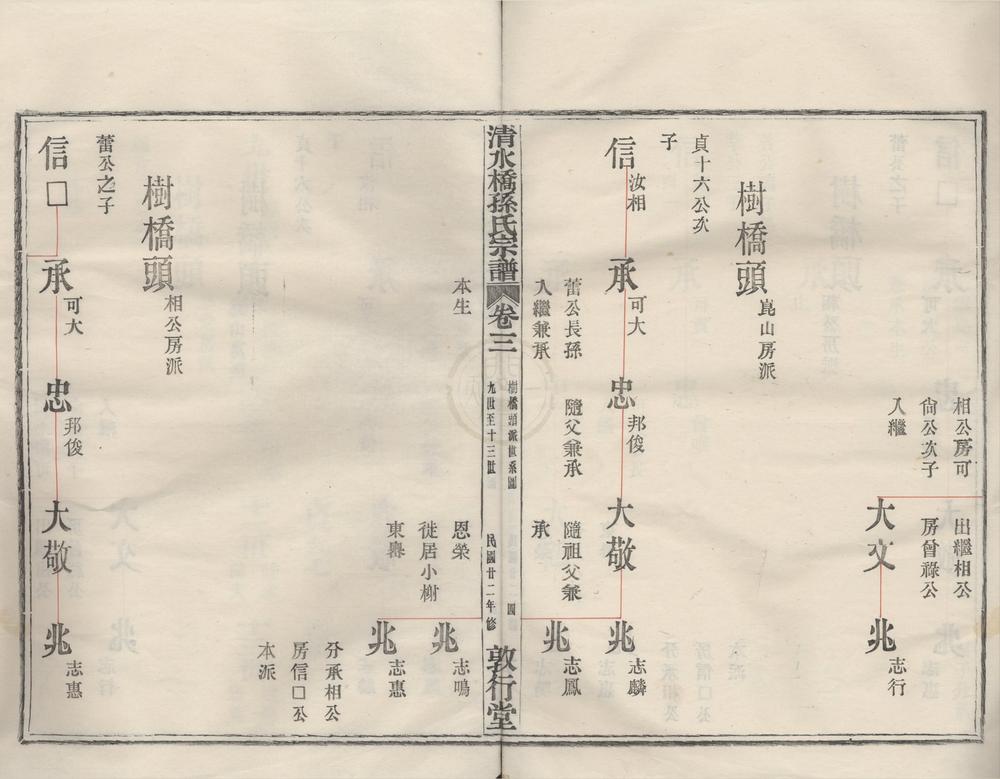 相公房可
尙公次子
入繼
出繼相公
房曾祿公
大文
兆
志行
樹橋頭
崑山房派
貞十六公次
子
信
汝相
承
可大
忠
邦俊
大敬
兆
志麟
蕾公長孫
入繼兼承
隨父兼承
隨祖父兼
承
兆
志鳳
清水橋孫氏宗譜
卷三
樹橋頭派世系圖
九世至十三世
四
民國廿二年修
敦行堂
本生
恩榮
徙居小榭
東嶴
兆
志鳴
兆
志惠
分承相公
房信口公
本派
樹橋頭
相公房派
蕾公之子
信口
承
可大
忠
邦俊
大敬
兆
志惠